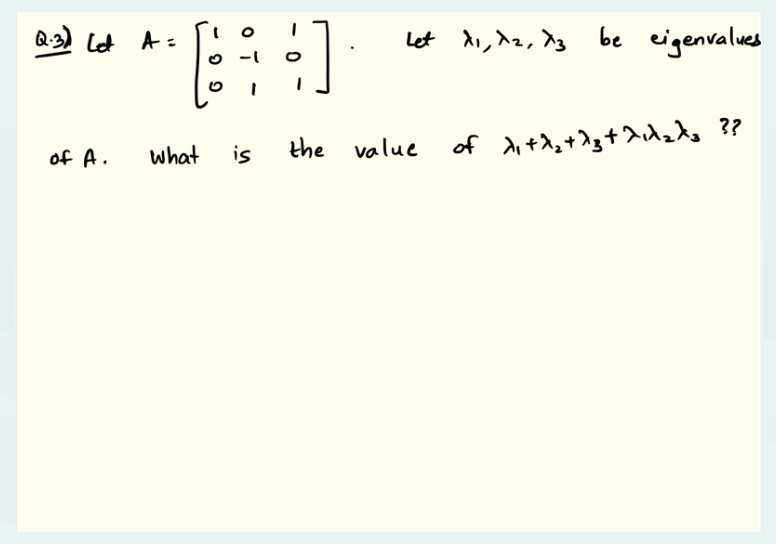 Q.3) Let A = [1 0 1
0 -1 0
0 1 1]. Let λ₁, λ₂, λ₃ be eigenvalues
of A. What is the value of λ₁+λ₂+λ₃+λ₁λ₂λ₃ ??